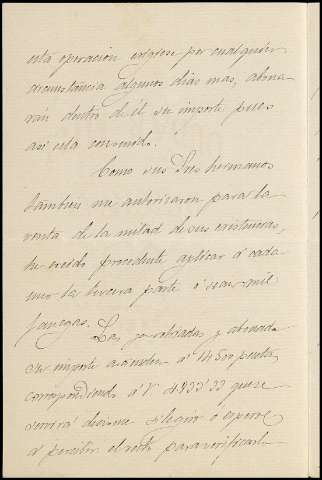 esta operacion exigiese por cualquier
circunstancia algunos dias mas, abona-
rán dentro de él su importe pues
asi esta convenido.
Como sus Sres hermanos
tambien me autorizaron para la
venta de la mitad de sus existencias,
he creido procedente aplicar á cada
uno la tercera parte ó sean mil
fanegas. Las ya retiradas y abonado
su importe ascienden á 14500 pesetas,
correspondiendo á V 4833'33 que se
servirá decirme si le giro ó espero
á percibir el resto para verificarlo